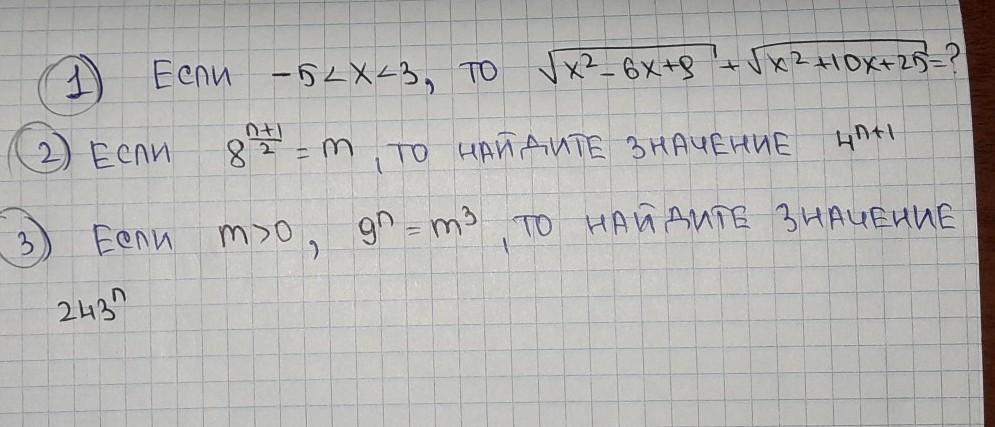 1) Если -5<x<3, то √x²-6x+9 + √x²+10x+25=?
2) Если 8^((n+1)/2) = m, то найдите значение 4^(n+1)
3) Если m>0, 9ⁿ=m³, то найдите значение
243ⁿ